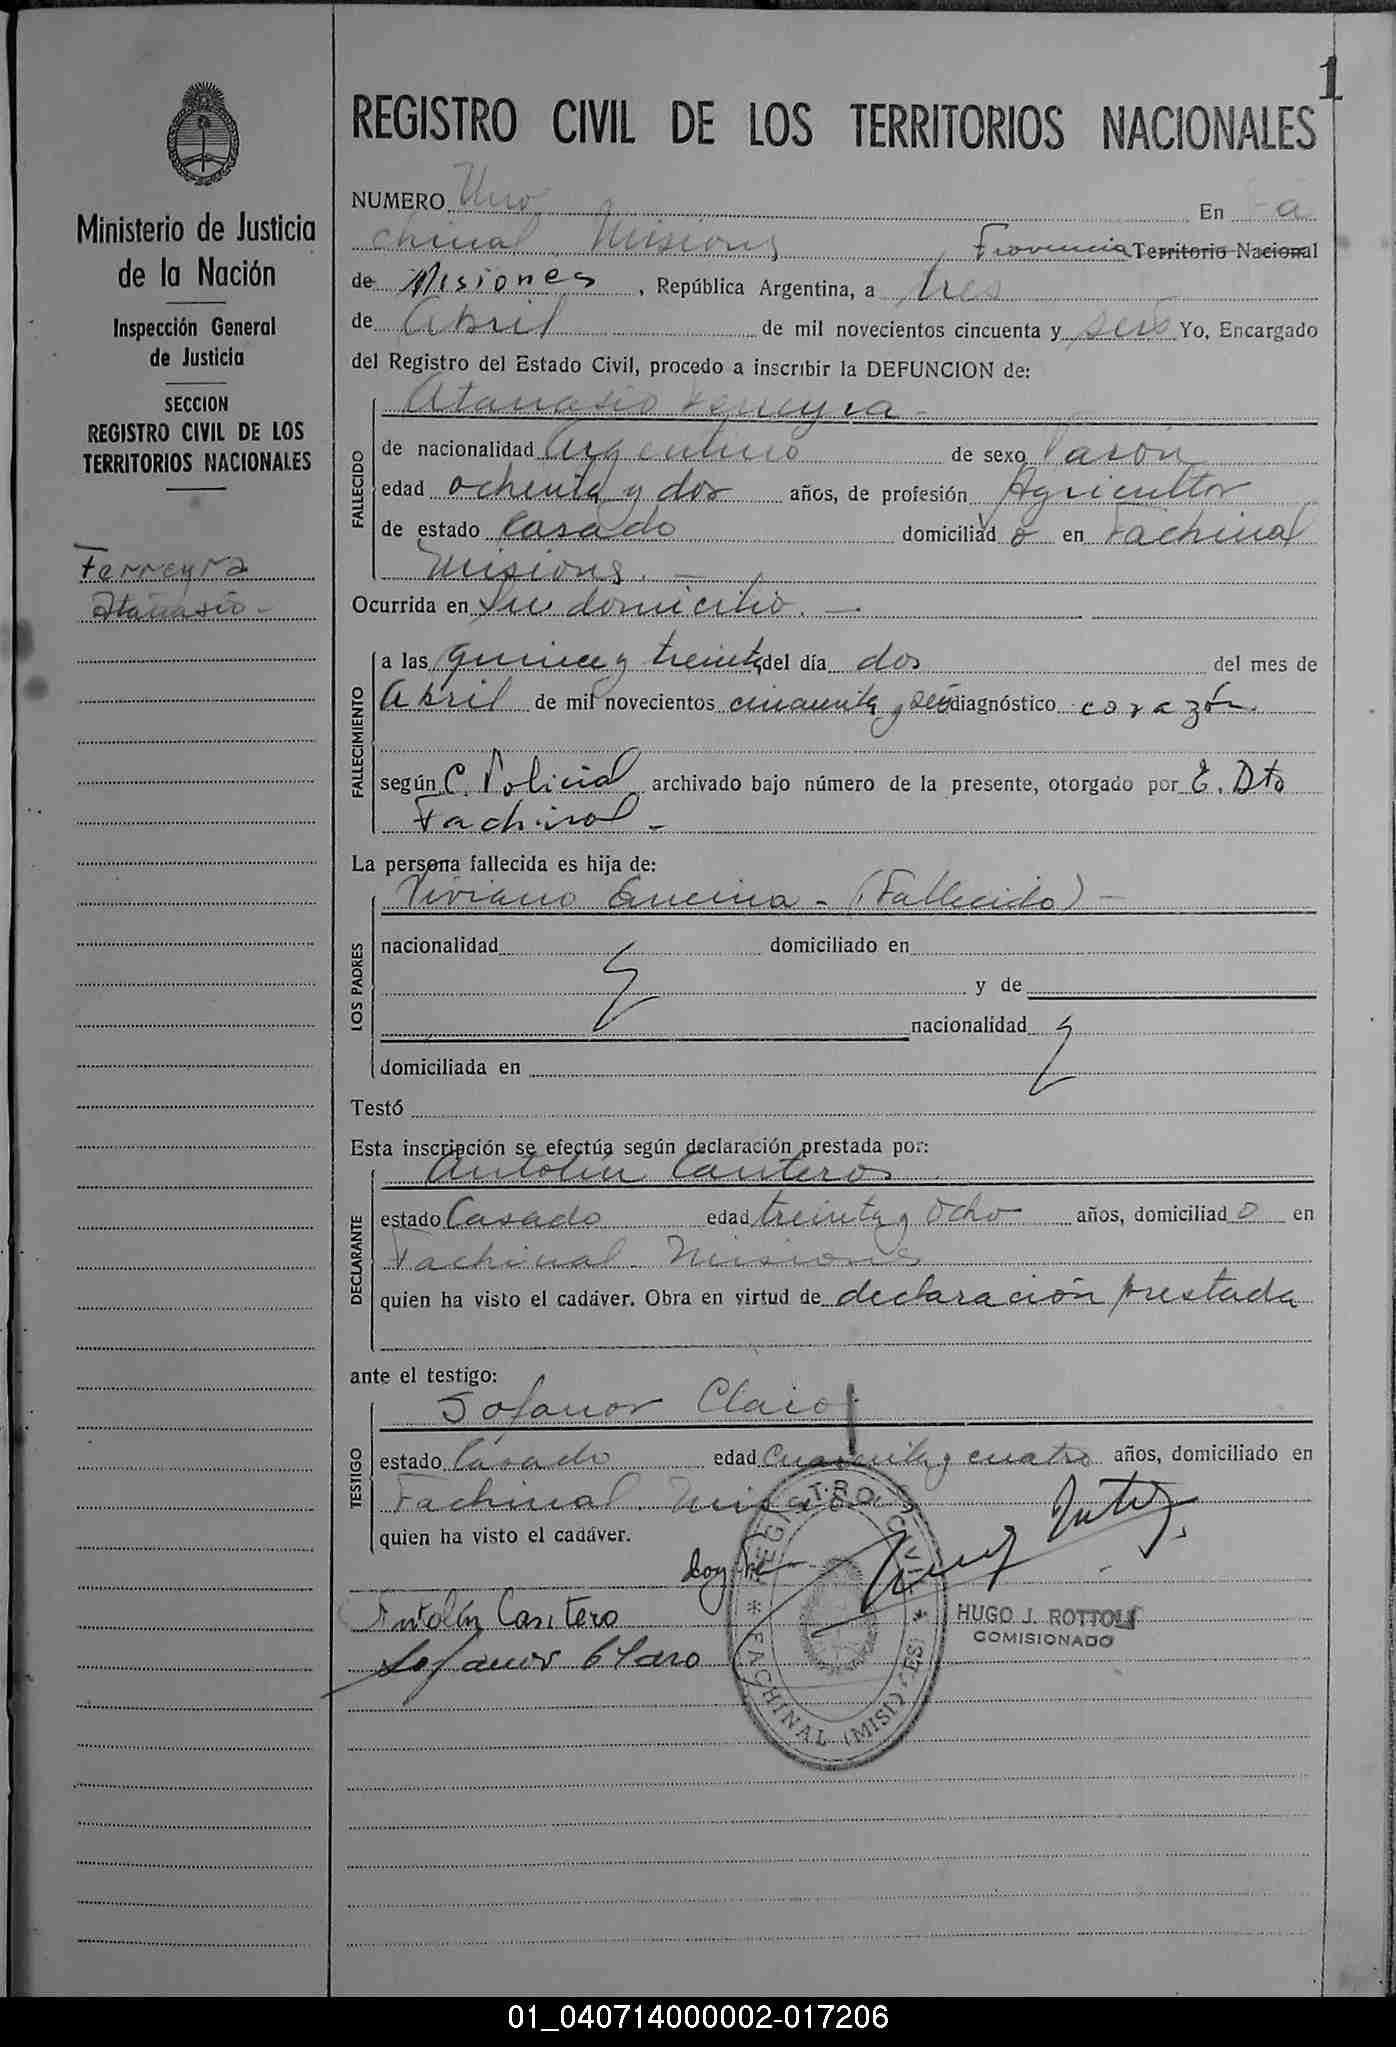 1
REGISTRO CIVIL DE LOS TERRITORIOS NACIONALES
Ministerio de Justicia
de la Nación
Inspección General
de Justicia
SECCION
REGISTRO CIVIL DE LOS
TERRITORIOS NACIONALES
Ferreyra
Atanasio -
NUMERO Uno En Fa
chinal Misiones Provincia Territorio Nacional
de Misiones, República Argentina, a tres
de Abril de mil novecientos cincuenta y seis Yo, Encargado
del Registro del Estado Civil, procedo a inscribir la DEFUNCION de:
Atanasio Ferreyra -
FALLECIDO
de nacionalidad Argentino de sexo Varón
edad ochenta y dos años, de profesión Agricultor
de estado Casado domiciliado en Fachinal
Misiones. -
Ocurrida en Su domicilio. -
FALLECIMIENTO
a las quince y treinta del día dos del mes de
Abril de mil novecientos cincuenta y seis diagnóstico corazón.
según C. Policial archivado bajo número de la presente, otorgado por E. Dto
Fachinal -
La persona fallecida es hija de:
LOS PADRES
Viviano Encina - (Fallecido) -
nacionalidad domiciliado en
y de
nacionalidad
domiciliada en
Testó
Esta inscripción se efectúa según declaración prestada por:
DECLARANTE
Antolín Cantero
estado Casado edad treinta y Ocho años, domiciliado en
Fachinal - Misiones
quien ha visto el cadáver. Obra en virtud de declaración prestada
ante el testigo:
TESTIGO
Sofanor Claro
estado Casado edad cuarenta y cuatro años, domiciliado en
Fachinal. Misiones
quien ha visto el cadáver.
Doy fe
Antolín Cantero
Sofanor Claro
REGISTRO CIVIL
* FACHINAL (MISIONES) *
HUGO J. ROTTOLI
COMISIONADO
01_040714000002-017206